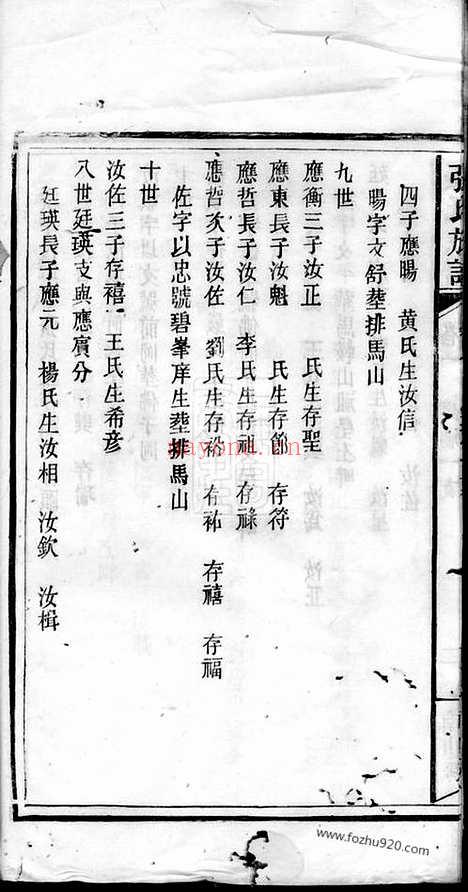 張氏族譜
四子應暘 黄氏生汝信
暘字文舒葬排馬山
九世
應衡三子汝正 氏生存聖
應東長子汝魁 氏生存 存符
應哲長子汝仁 李氏生存礼 存祿
應哲次子汝佐 劉氏生存裕 存祐 存禧 存福
佐字以忠號碧峯庠生葬排馬山
十世
汝佐三子存禧 王氏生希彦
八世廷瑛支與應賔分
廷瑛長子應元 楊氏生汝相 汝欽 汝楫
nayona.cn
www.fozhu920.com